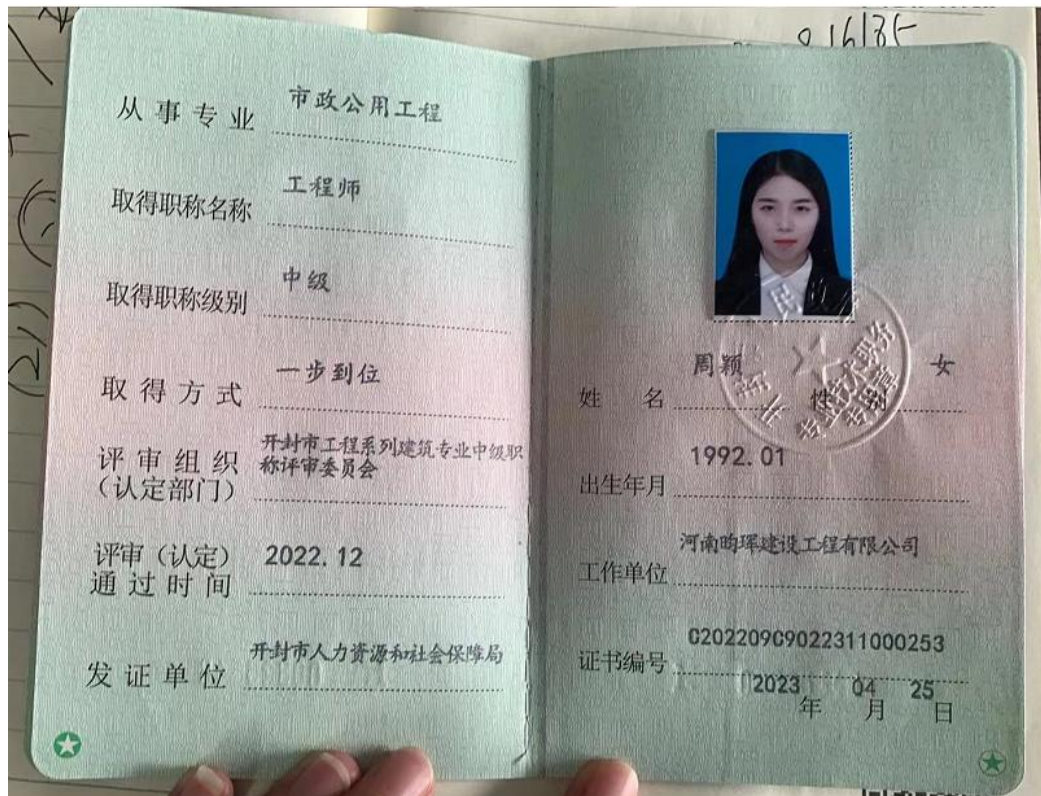 从事专业 市政公用工程
取得职称名称 工程师
取得职称级别 中级
取得方式 一步到位
评审组织
(认定部门)
开封市工程系列建筑专业中级职
称评审委员会
评审（认定）
通过时间 2022.12
发证单位 开封市人力资源和社会保障局
姓名 周颖 性别 女
出生年月 1992.01
工作单位 河南昀珲建设工程有限公司
证书编号 C20220909022311000253
2023年 04月 25日
专业技术职务
专用章